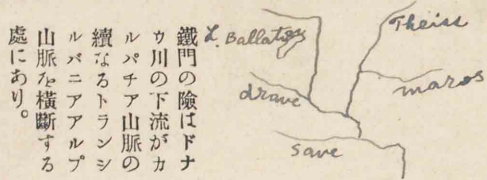 鐵門の險はドナ
ウ川の下流がカ
ルパチア山脈の
續なるトランシ
ルバニアアルプ
山脈を橫斷する
處にあり。
L. Ballaton
Theiss
maros
drave
save